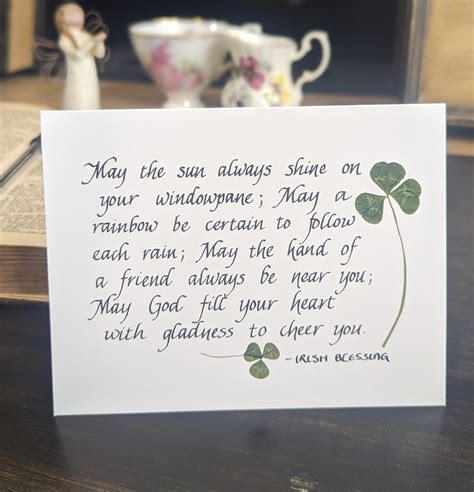 May the sun always shine on
your windowpane; May a
rainbow be certain to follow
each rain; May the hand of
a friend always be near you;
May God fill your heart
with gladness to cheer you.
- IRISH BLESSING